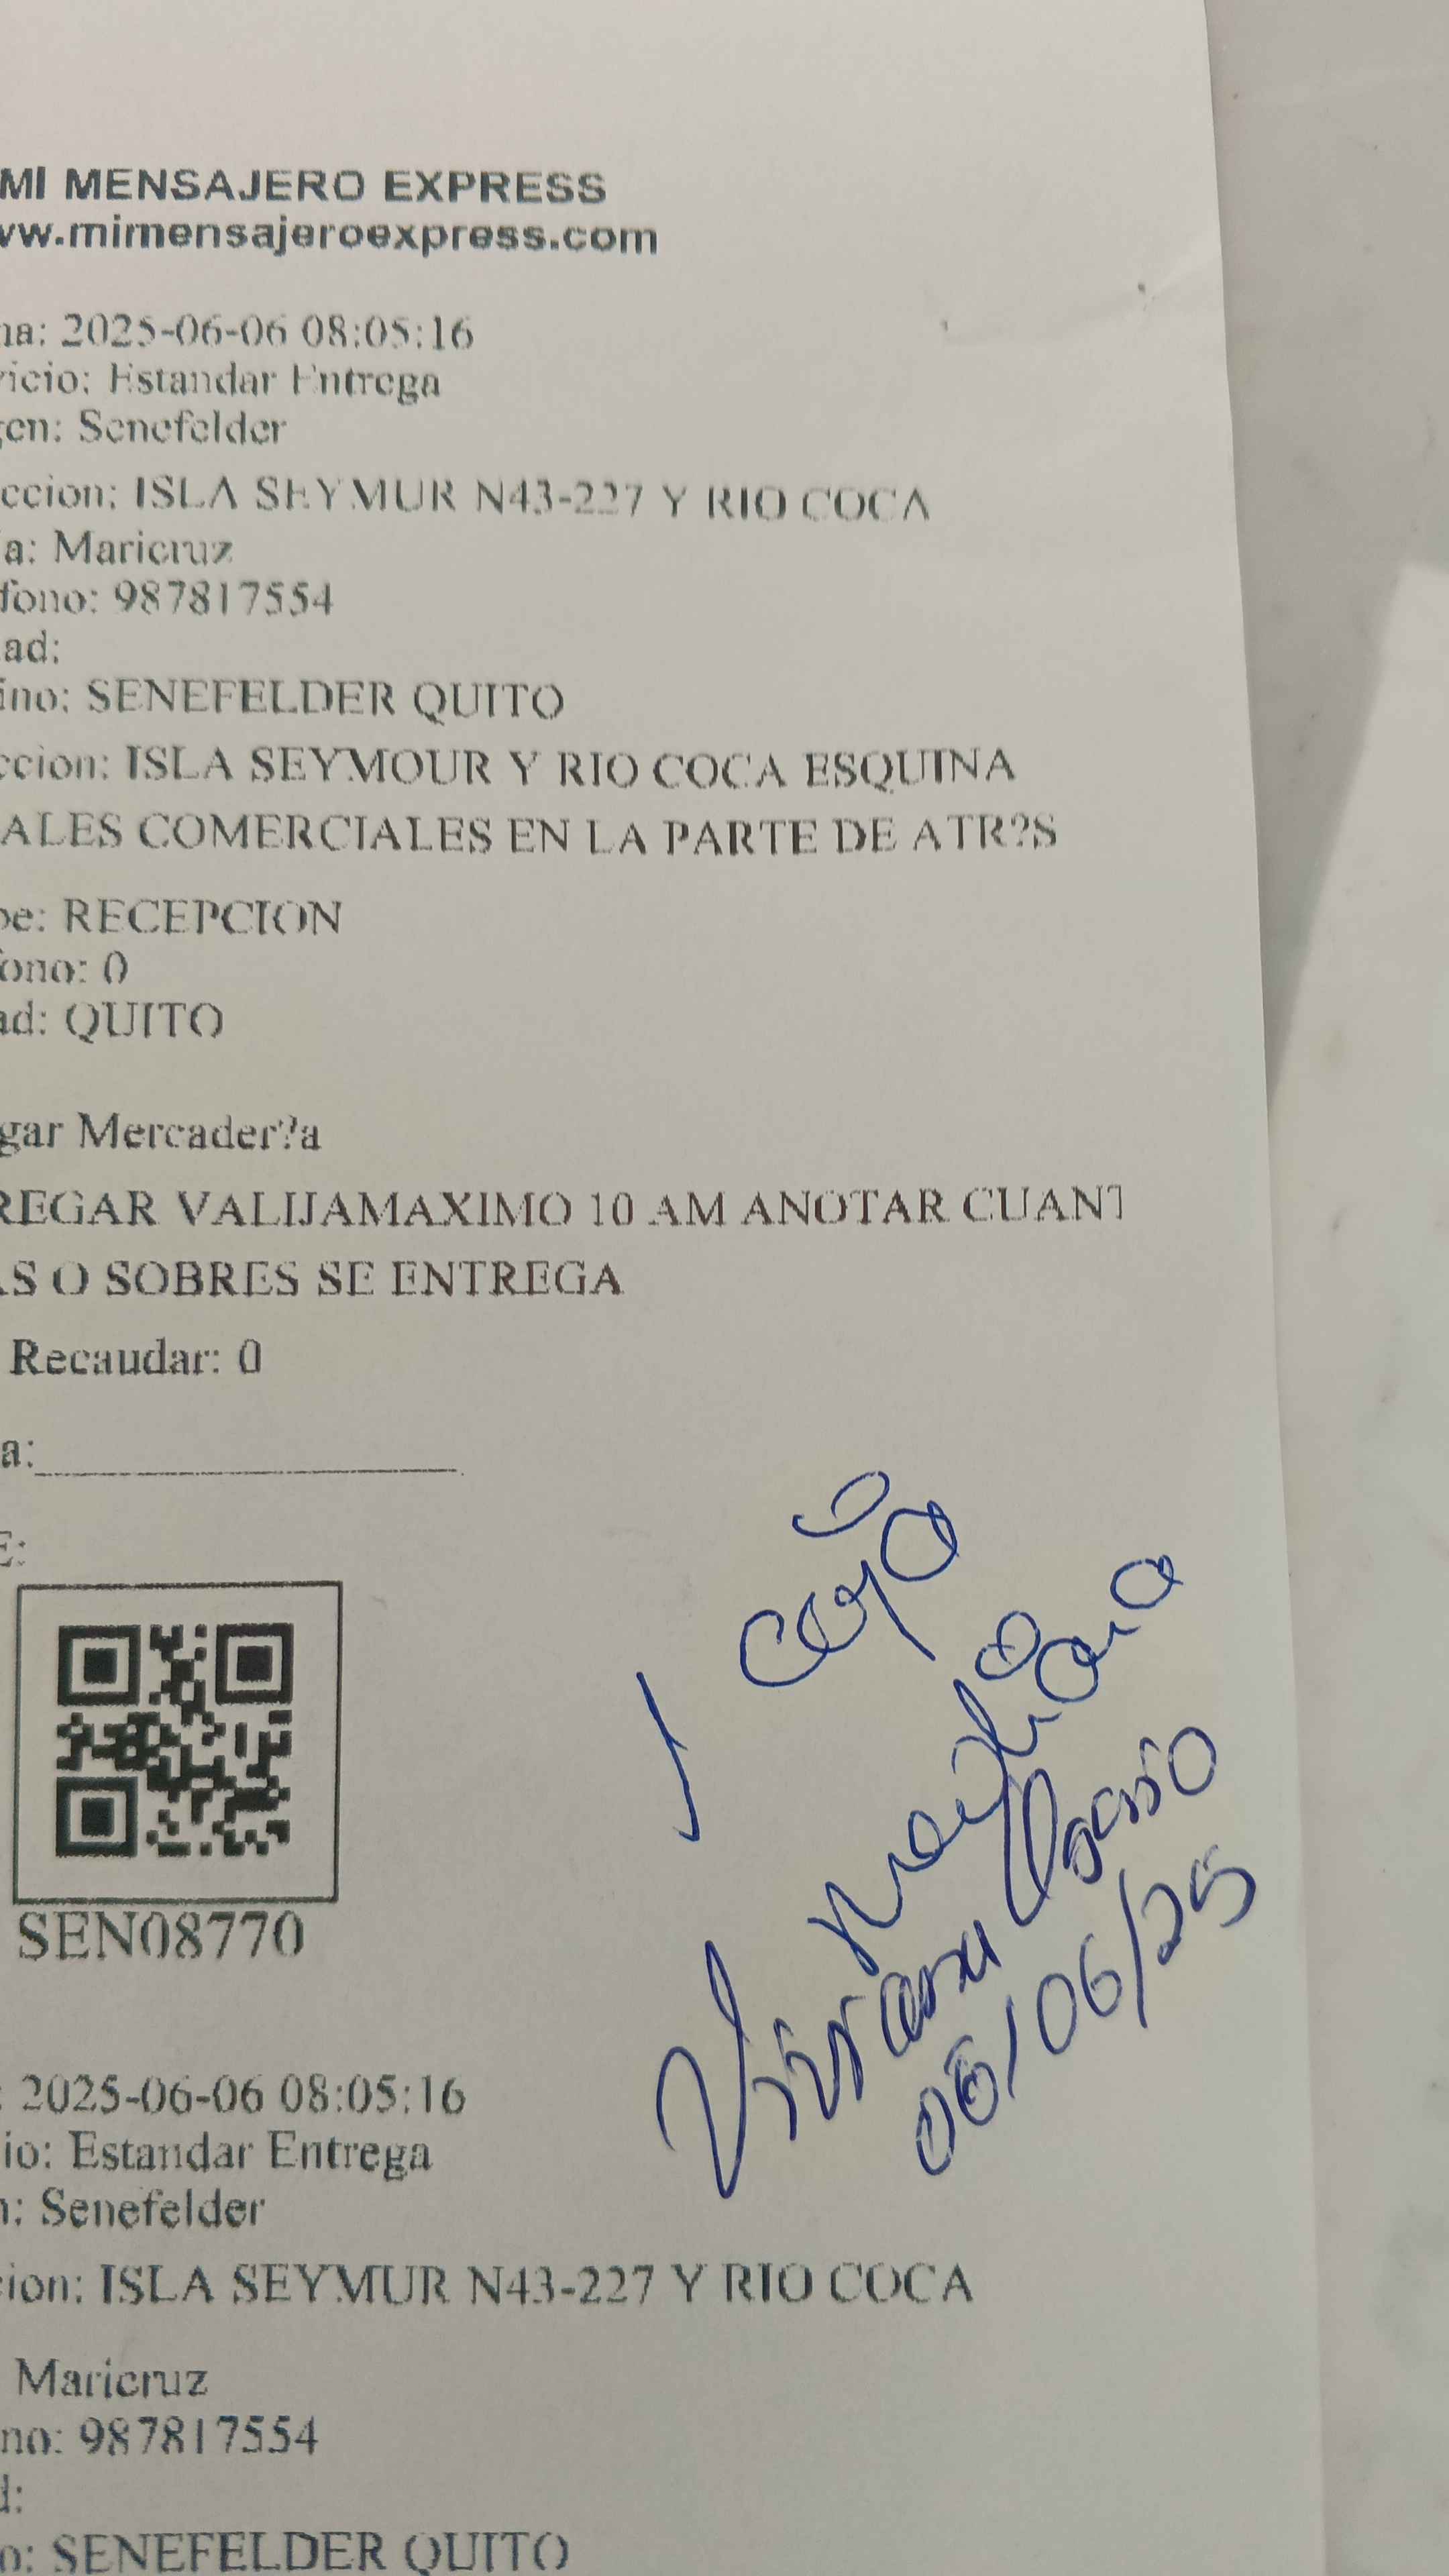 MI MENSAJERO EXPRESS
ww.mimensajeroexpress.com
ha: 2025-06-06 08:05:16
vicio: Estandar Entrega
gen: Senefelder
ccion: ISLA SEYMUR N43-227 Y RIO COCA
a: Maricruz
fono: 987817554
ad:
ino: SENEFELDER QUITO
ccion: ISLA SEYMOUR Y RIO COCA ESQUINA
ALES COMERCIALES EN LA PARTE DE ATR?S
be: RECEPCION
ono: 0
ad: QUITO
gar Mercader?a
REGAR VALIJAMAXIMO 10 AM ANOTAR CUANT
AS O SOBRES SE ENTREGA
Recaudar: 0
a:
E:
1 caja
Viviana Osorio
06/06/25
SEN08770
: 2025-06-06 08:05:16
io: Estandar Entrega
n: Senefelder
cion: ISLA SEYMUR N43-227 Y RIO COCA
Maricruz
no: 987817554
d:
o: SENEFELDER QUITO